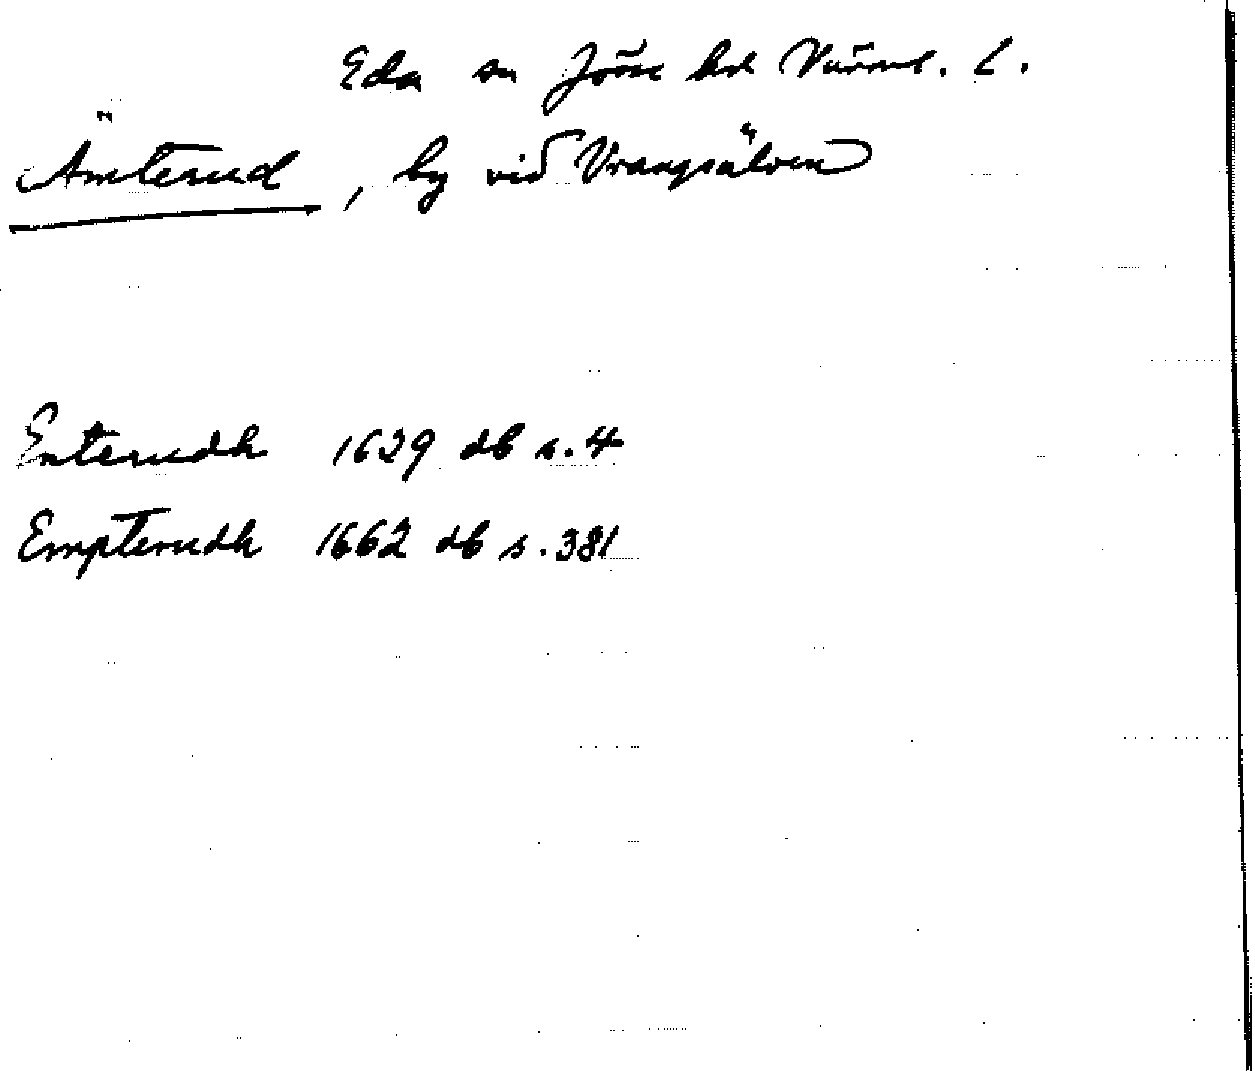 Eda sn Jösse hd Värml. L.
Ämterud, by vid Vrangsälven
Enterudh 1629 db s. 4
Empterudh 1662 db s. 381